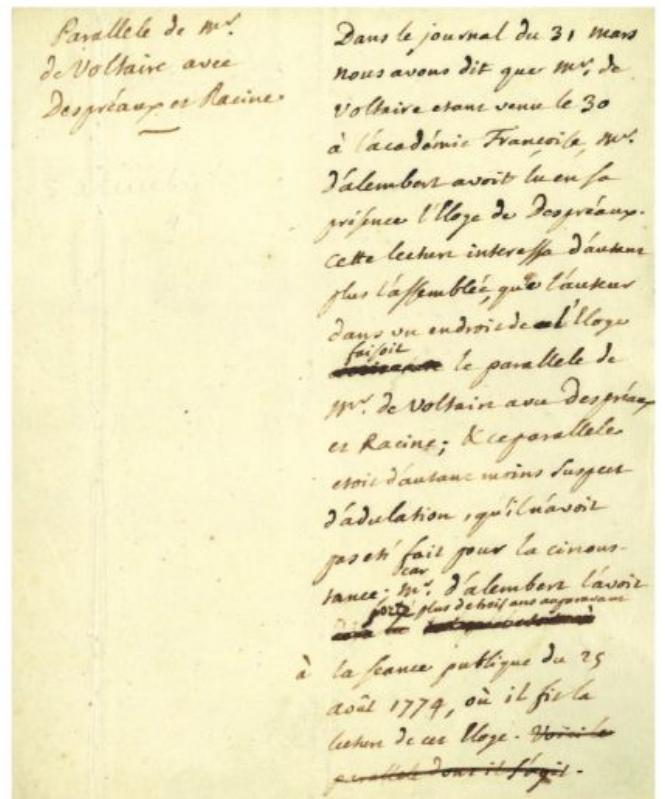 Parallele de Mr.
de Voltaire avec
Despréaux et Racine.
Dans le journal du 31 mars
nous avons dit que Mr. de
Voltaire etant venu le 30
à l'académie Françoise, Mr.
d'alembert avoit lu en sa
présence l'Eloge de Despréaux.
cette lecture interessa d'autant
plus l'assemblée, que l'auteur
dans un endroit de l'Eloge
faisoit
le parallele de
Mr. de Voltaire avec Despréaux
et Racine; & ce parallele
etoit d'autant moins suspect
d'adulation, qu'il n'avoit
pas eté fait pour la circons-
tance; car Mr. d'alembert l'avoit
plus de trois ans auparavant
à la séance publique du 25
août 1774, où il fit la
lecture de cet Eloge. Voici le
parallele dont il s'agit.